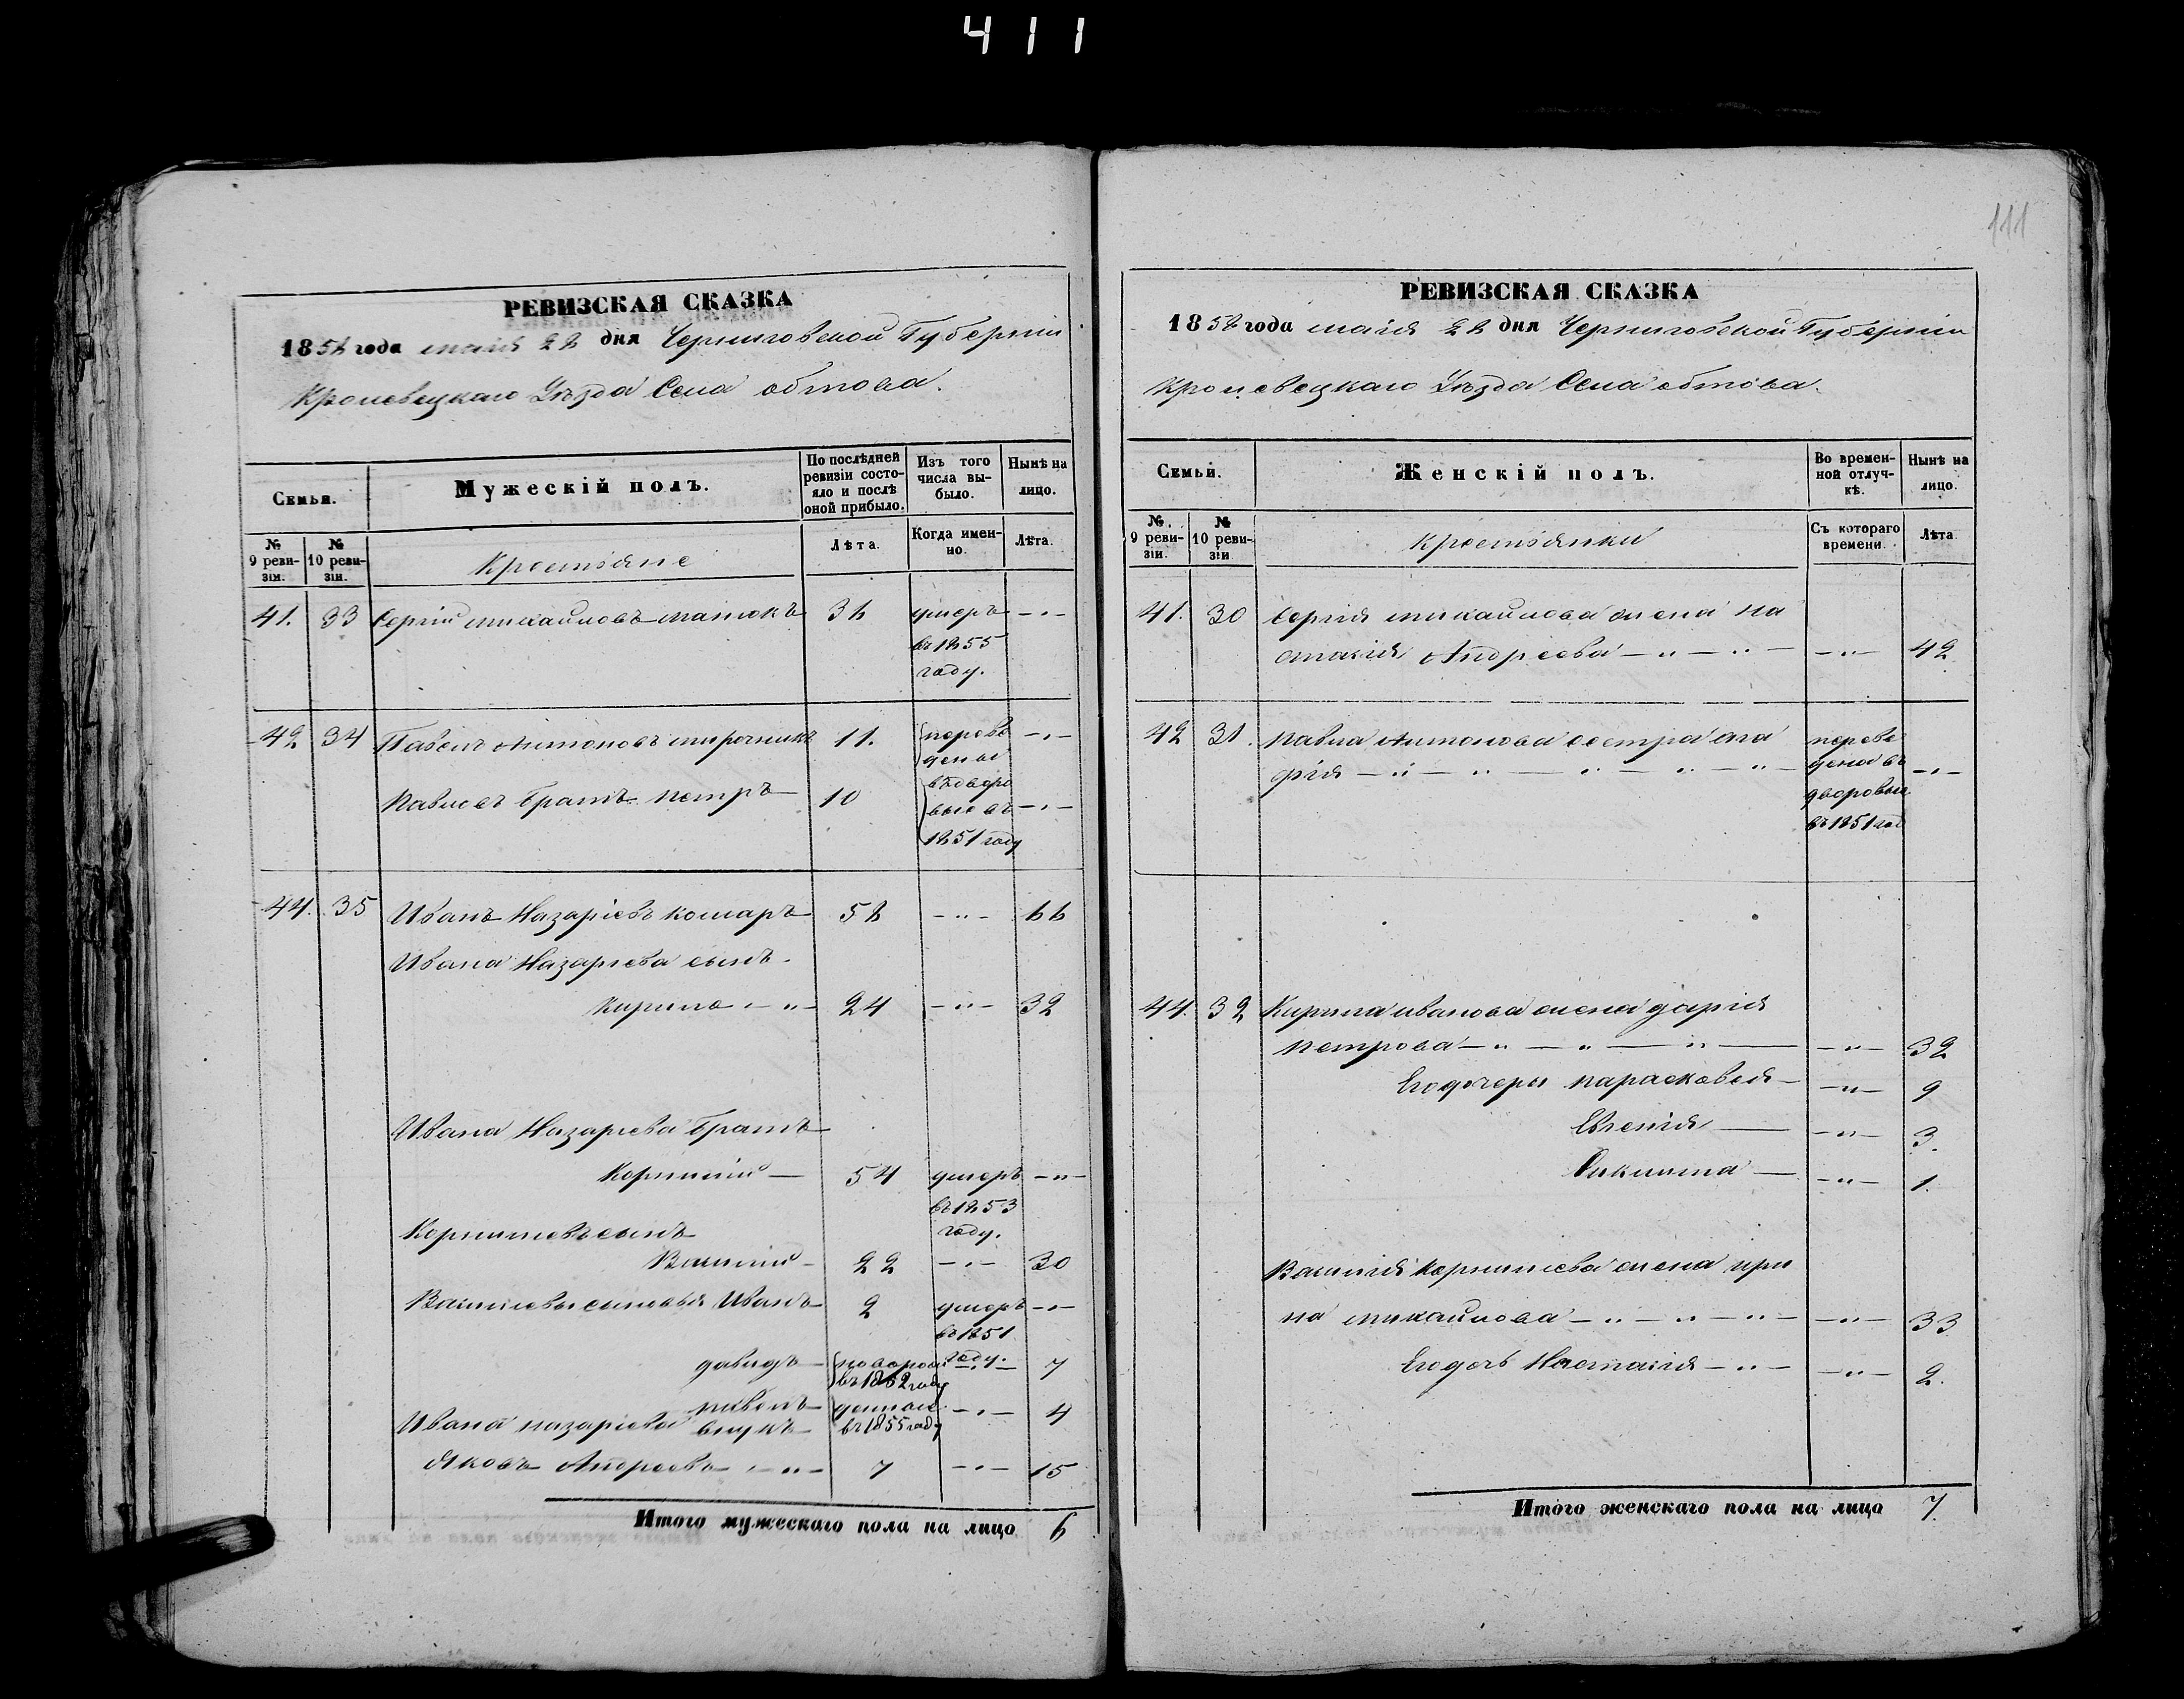 411
111
РЕВИЗСКАЯ СКАЗКА
1858 года маія 28 дня Черниговской Губерніи
Кролевецкаго Уѣзда Села обтова.
Семьи.
Мужескій полъ.
По послѣдней ревизіи состояло и послѣ оной прибыло.
Изъ того числа выбыло.
Нынѣ на лицо.
№ 9 ревизіи.
№ 10 ревизіи.
Крестьяне
Лѣта.
Когда именно.
Лѣта.
41. 33 Сергій михайловъ 36 умеръ —"—
въ 1855
году.
42 34 Павелъ Антоновъ мирочникъ 11. переве —"—
дены
Павловъ братъ петръ 10 въ дворо
вые въ —"—
1851 году
44. 35 Иванъ Назаріевъ комаръ 58 —"— 66
Ивана Назаріева сынъ
Кирило —"— 24 —"— 32
Ивана Назаріева братъ
Корнилій — 54 умеръ —"—
въ 1853
году.
Корниліевъ сынъ
Василій — 22 —"— 30
Василіевы сыновья Иванъ 2 умеръ —"—
въ 1851
году.
давидъ — новорож —"— 7
въ 1852 году
павелъ — денные —"— 4
Ивана назаріева внукъ въ 1855 году
Яковъ Андреевъ —"— 7 —"— 15
Итого мужескаго пола на лицо 6
РЕВИЗСКАЯ СКАЗКА
1858 года маія 28 дня Черниговской Губерніи
Кролевецкаго Уѣзда Села обтова.
Семьи.
Женскій полъ.
Во временной отлучкѣ.
Нынѣ на лицо.
№ 9 ревизіи.
№ 10 ревизіи
Крестьянки
Съ котораго времени.
Лѣта.
41. 30 Сергія михайлова жена на
стасія Андреева —"—"— —"— 42
42 31. Павла Антонова сестра ага переве
фія —"—"—"—"—"— дена въ —"—
дворовые
въ 1851 год
44. 32 Кирила иванова жена дарія
петрова —"—"—"— —"— 32
Его дочери парасковея — —"— 9
Евгенія — —"— 3
—"— 1.
Василія Корниліева жена ири
на михайлова —"—"—"— —"— 33
Его дочь Настасія —"— —"— 2.
Итого женскаго пола на лицо 7.